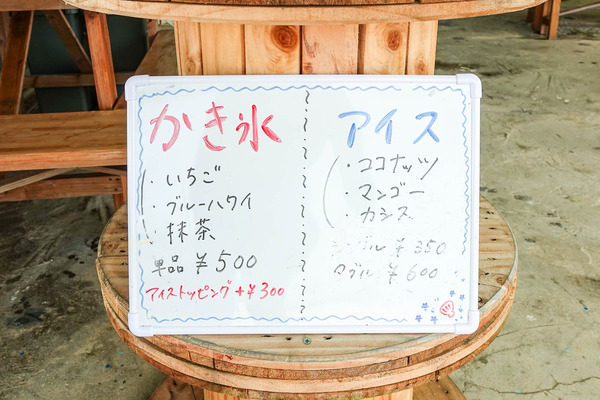 かき氷
・いちご
・ブルーハワイ
・抹茶
単品 ¥500
アイストッピング+¥300
アイス
・ココナッツ
・マンゴー
・カシス
シングル ¥350
ダブル ¥600